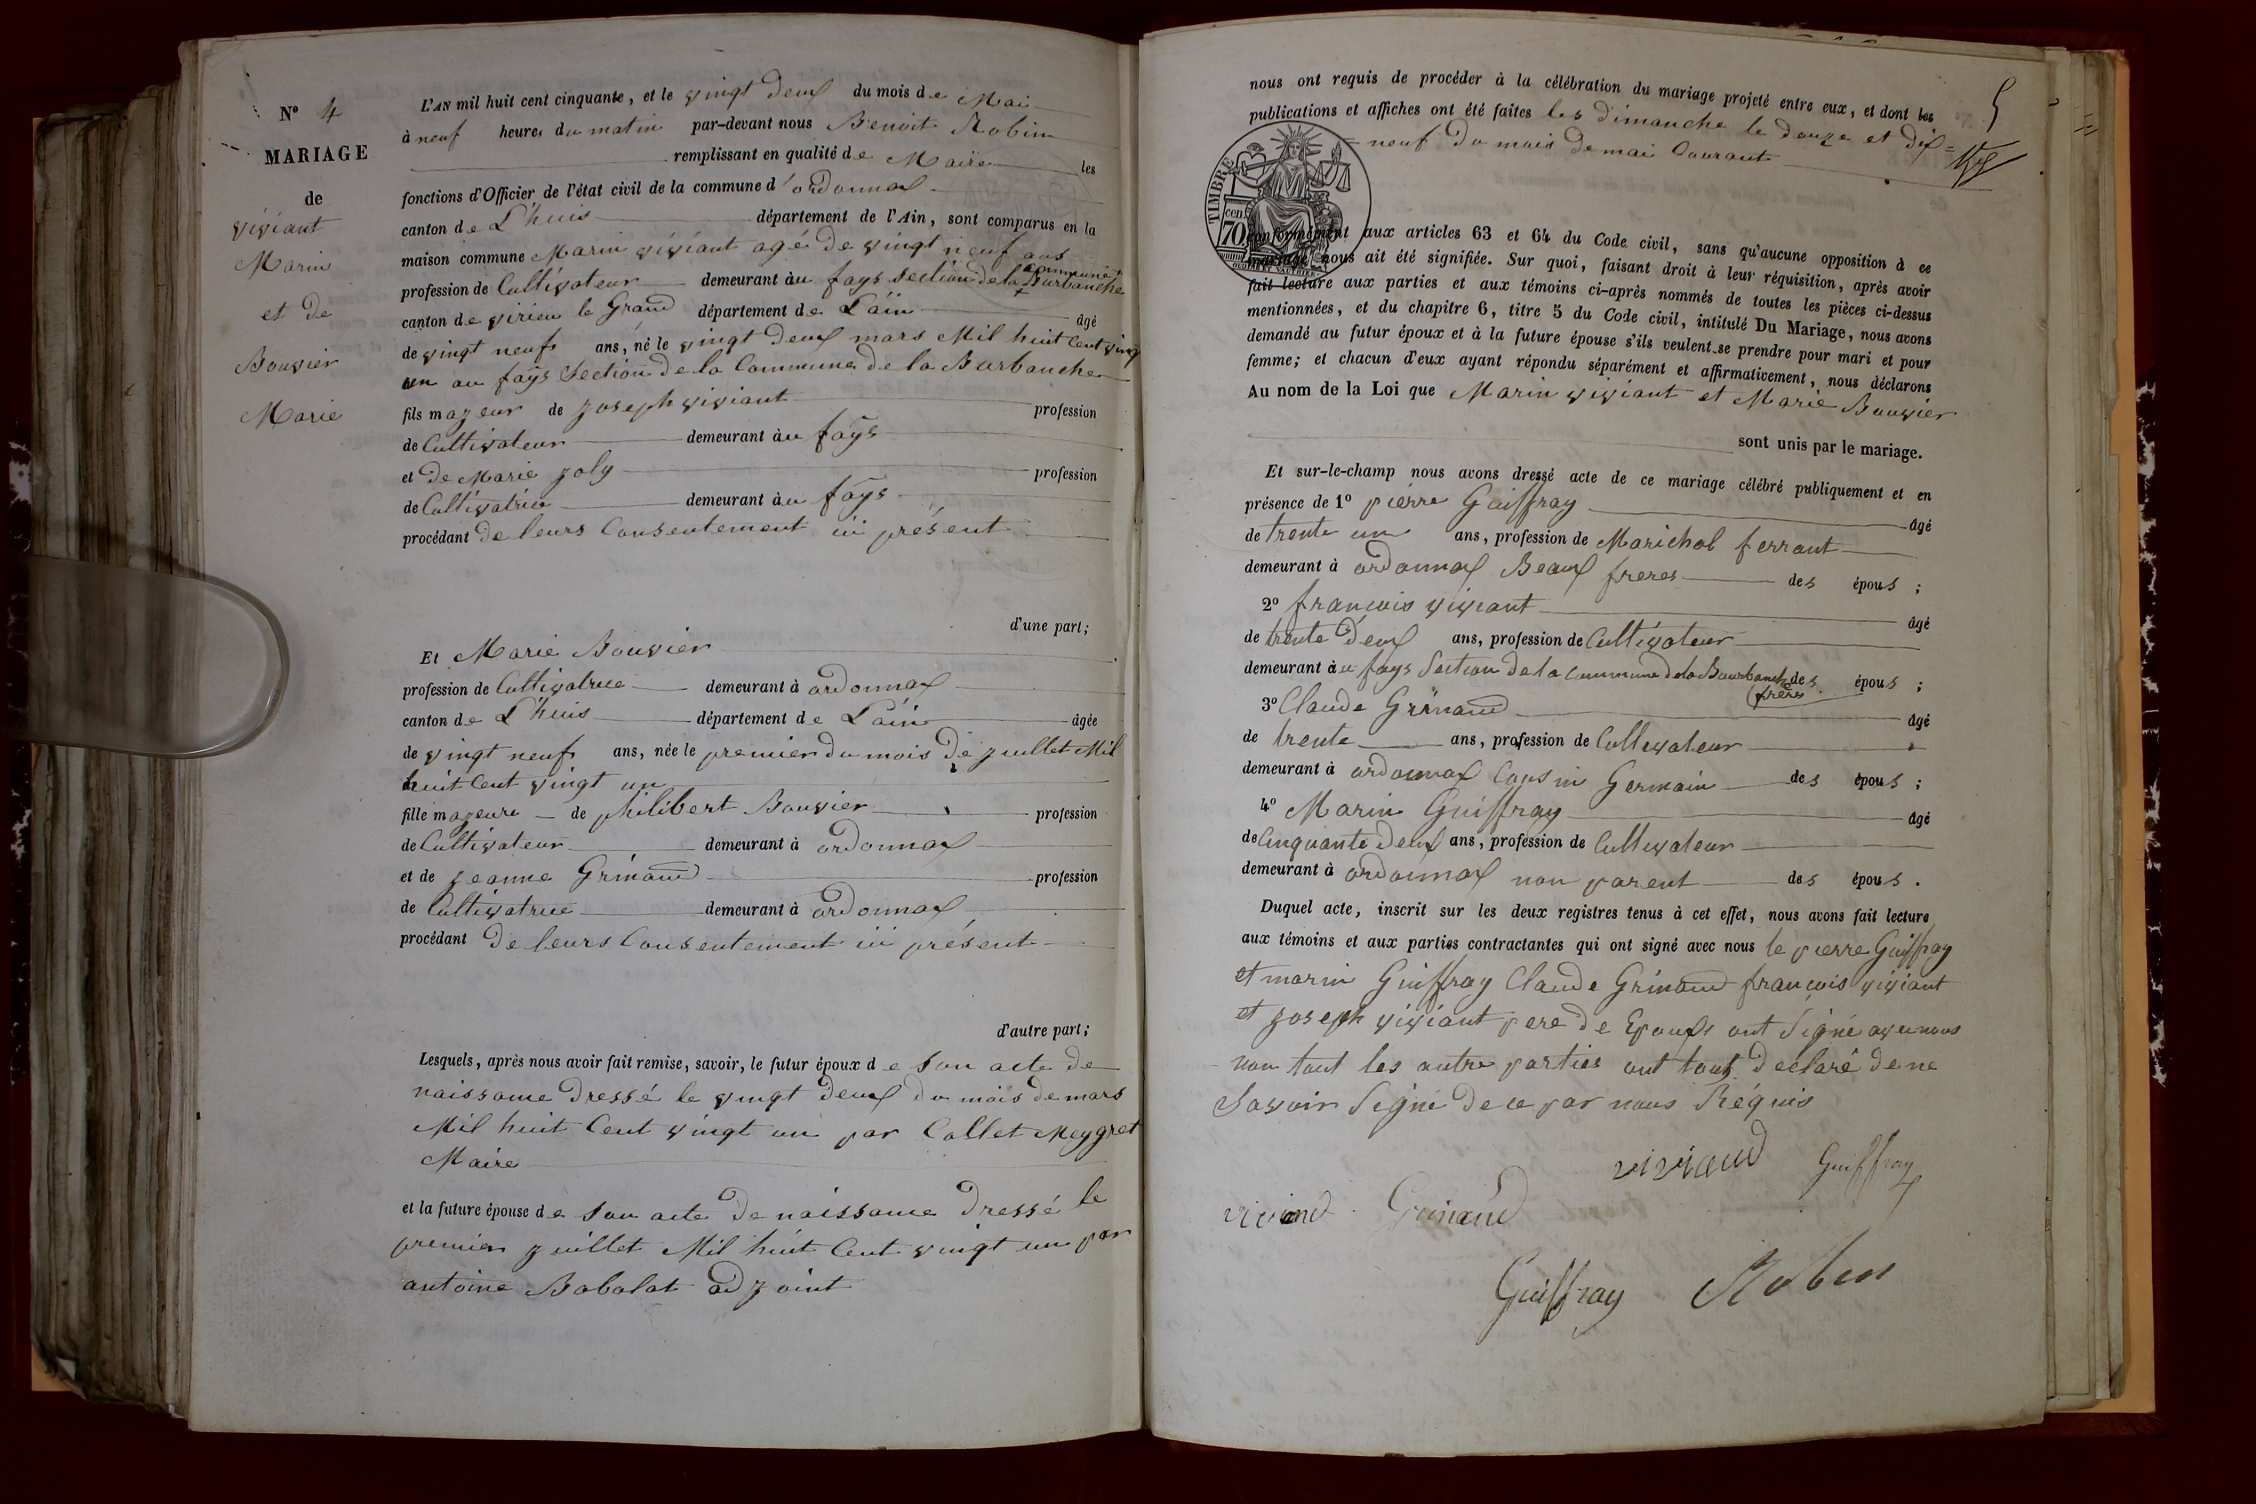 N° 4
MARIAGE
de
viviant
Marin
et de
Bouvier
Marie
L'AN mil huit cent cinquante, et le vingt deux du mois de Mai
à neuf heures du matin par-devant nous Benoit Robin
remplissant en qualité de Maire les
fonctions d'Officier de l'état civil de la commune d'ordonnax
canton de L'huis département de l'Ain, sont comparus en la
maison commune Marin viviant agé de vingt neuf ans
profession de Cultivateur demeurant au fays section de la commune Burbanche
canton de virieu le Grand département de L'ain âgé
de vingt neuf ans, né le vingt deux mars Mil huit Cent vingt
un au fays Section de la Commune de la Burbanche
fils majeur de joseph viviant profession
de Cultivateur demeurant au fays
et de Marie joly profession
de Cultivatrice demeurant au fays
procédant de leurs Consentement ici présent
d'une part;
Et Marie Bouvier
profession de Cultivatrice demeurant à ordonnax
canton de L'huis département de L'ain âgée
de vingt neuf ans, née le premier du mois de juillet Mil
huit Cent vingt un
fille majeure de philibert Bouvier profession
de Cultivateur demeurant à ordonnax
et de jeanne Grinand profession
de Cultivatrice demeurant à ordonnax
procédant de leurs Consentement ici présent
d'autre part;
Lesquels, après nous avoir fait remise, savoir, le futur époux de son acte de
naissance dressé le vingt deux du mois de mars
Mil huit Cent vingt un par Collet Meygret
Maire
et la future épouse de son acte de naissance dressé le
premier juillet Mil huit Cent vingt un par
antoine Babolat adjoint
5
nous ont requis de procéder à la célébration du mariage projeté entre eux, et dont les
publications et affiches ont été faites les dimanche le douze et dix=
neuf du mois de mai Courant
TIMBRE
70 cen
conformément aux articles 63 et 64 du Code civil, sans qu'aucune opposition à ce
mariage nous ait été signifiée. Sur quoi, faisant droit à leur réquisition, après avoir
fait lecture aux parties et aux témoins ci-après nommés de toutes les pièces ci-dessus
mentionnées, et du chapitre 6, titre 5 du Code civil, intitulé Du Mariage, nous avons
demandé au futur époux et à la future épouse s'ils veulent se prendre pour mari et pour
femme; et chacun d'eux ayant répondu séparément et affirmativement, nous déclarons
Au nom de la Loi que Marin viviant et Marie Bouvier
sont unis par le mariage.
Et sur-le-champ nous avons dressé acte de ce mariage célébré publiquement et en
présence de 1° pierre Guiffray âgé
de trente un ans, profession de Marichal ferrant
demeurant à ordonnax Beaux freres des épous;
2° francois viviant âgé
de trente deux ans, profession de Cultivateur
demeurant au fays Section de la commune de la Bourbanche des épous;
frères
3° Claude Grinand âgé
de trente ans, profession de Cultivateur
demeurant à ordonnax Cousin Germain des épous;
4° Marin Guiffray âgé
de Cinquante deux ans, profession de Cultivateur
demeurant à ordonnax non parent des épous.
Duquel acte, inscrit sur les deux registres tenus à cet effet, nous avons fait lecture
aux témoins et aux parties contractantes qui ont signé avec nous le pierre Guiffray
et marin Guiffray Claude Grinand francois viviant
et joseph viviant pere de Epoux ont Signé avec nous
non tout les autre parties ont tous declaré de ne
Savoir Signé de ce par nous Réquis
viviand Guiffray
viviand Grinand
Guiffray Robin